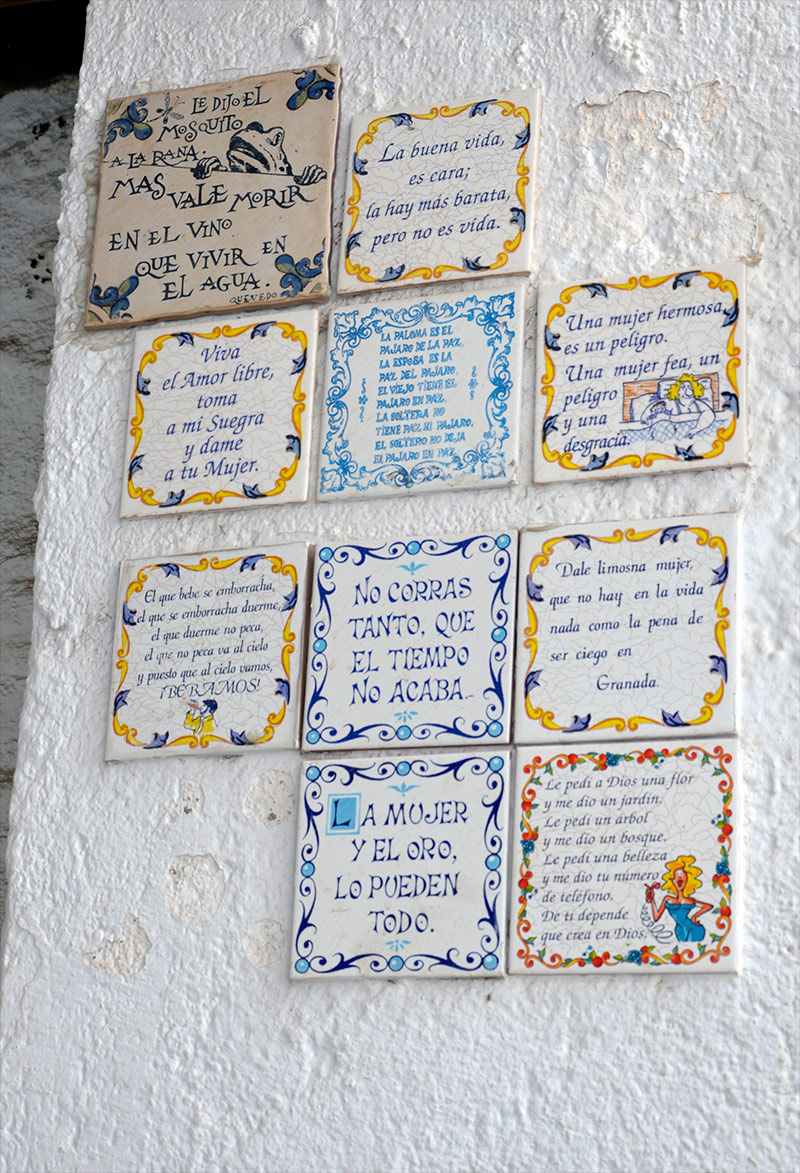 LE DIJO EL
MOSQUITO
A LA RANA.
MAS VALE MORIR
EN EL VINO
QUE VIVIR EN
EL AGUA.
QUEVEDO
La buena vida,
es cara;
la hay más barata,
pero no es vida.
Viva
el Amor libre,
toma
a mi Suegra
y dame
a tu Mujer.
LA PALOMA ES EL
PAJARO DE LA PAZ.
LA ESPOSA ES LA
PAZ DEL PAJARO.
EL VIEJO TIENE EL
PAJARO EN PAZ.
LA SOLTERA NO
TIENE PAZ NI PAJARO.
EL SOLTERO NO DEJA
EL PAJARO EN PAZ.
Una mujer hermosa,
es un peligro.
Una mujer fea, un
peligro
y una
desgracia.
El que bebe se emborracha,
el que se emborracha duerme,
el que duerme no peca,
el que no peca va al cielo
y puesto que al cielo vamos,
¡BEBAMOS!
NO CORRAS
TANTO, QUE
EL TIEMPO
NO ACABA.
Dale limosna mujer,
que no hay en la vida
nada como la pena de
ser ciego en
Granada.
LA MUJER
Y EL ORO,
LO PUEDEN
TODO.
Le pedí a Dios una flor
y me dio un jardín.
Le pedí un árbol
y me dio un bosque.
Le pedí una belleza
y me dio tu número
de teléfono.
De ti depende
que crea en Dios.